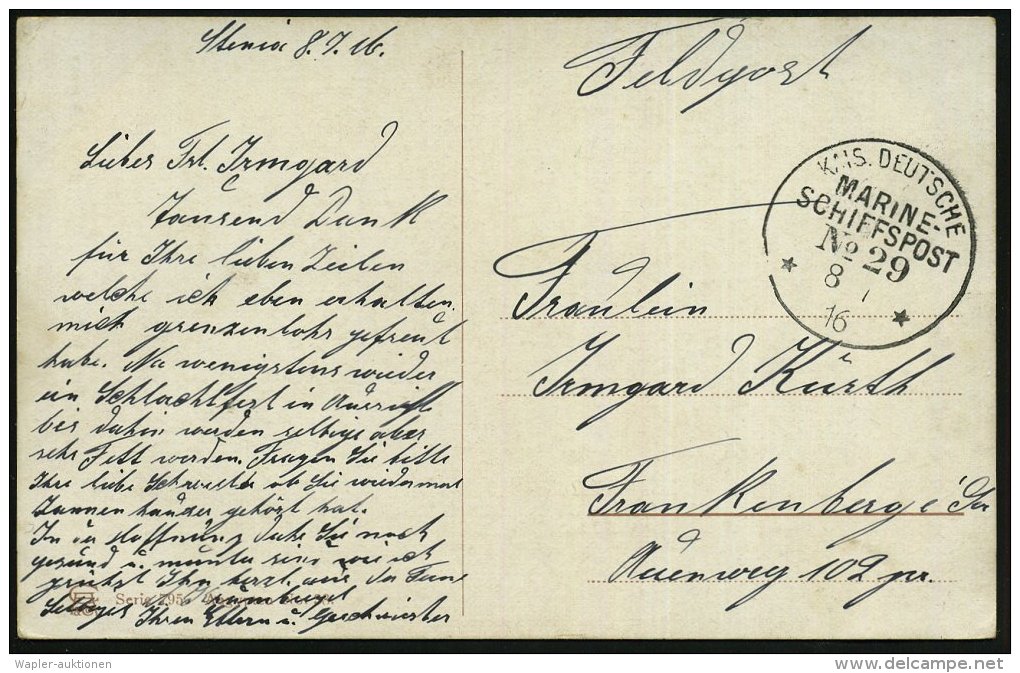 Stenia 8.7.16.
Feldpost
Liebes Frl. Irmgard
Tausend Dank
für Ihre lieben Zeilen
welche ich eben erhalten,
mich grenzenlohs gefreut
habe. Na wenigstens wieder
ein Schlachtfest in Aussicht
bis dahin werden selbige aber
sehr Fett werden. Fragen Sie bitte
Ihre liebe Schwester ob Sie wiedermal
gehört hat.
In der Hoffnung Sie noch
gesund u. munter sind wie ich
grüßt Ihn herzl. aus der Ferne
Ihren Eltern u. Geschwister
KAIS. DEUTSCHE
MARINE-
SCHIFFSPOST
No 29
8
16
Fräulein
Irmgard Kürth
Frankenberg i/Sa
Auenweg 102
Serie 795
Wapler-auktionen
www.delcampe.net